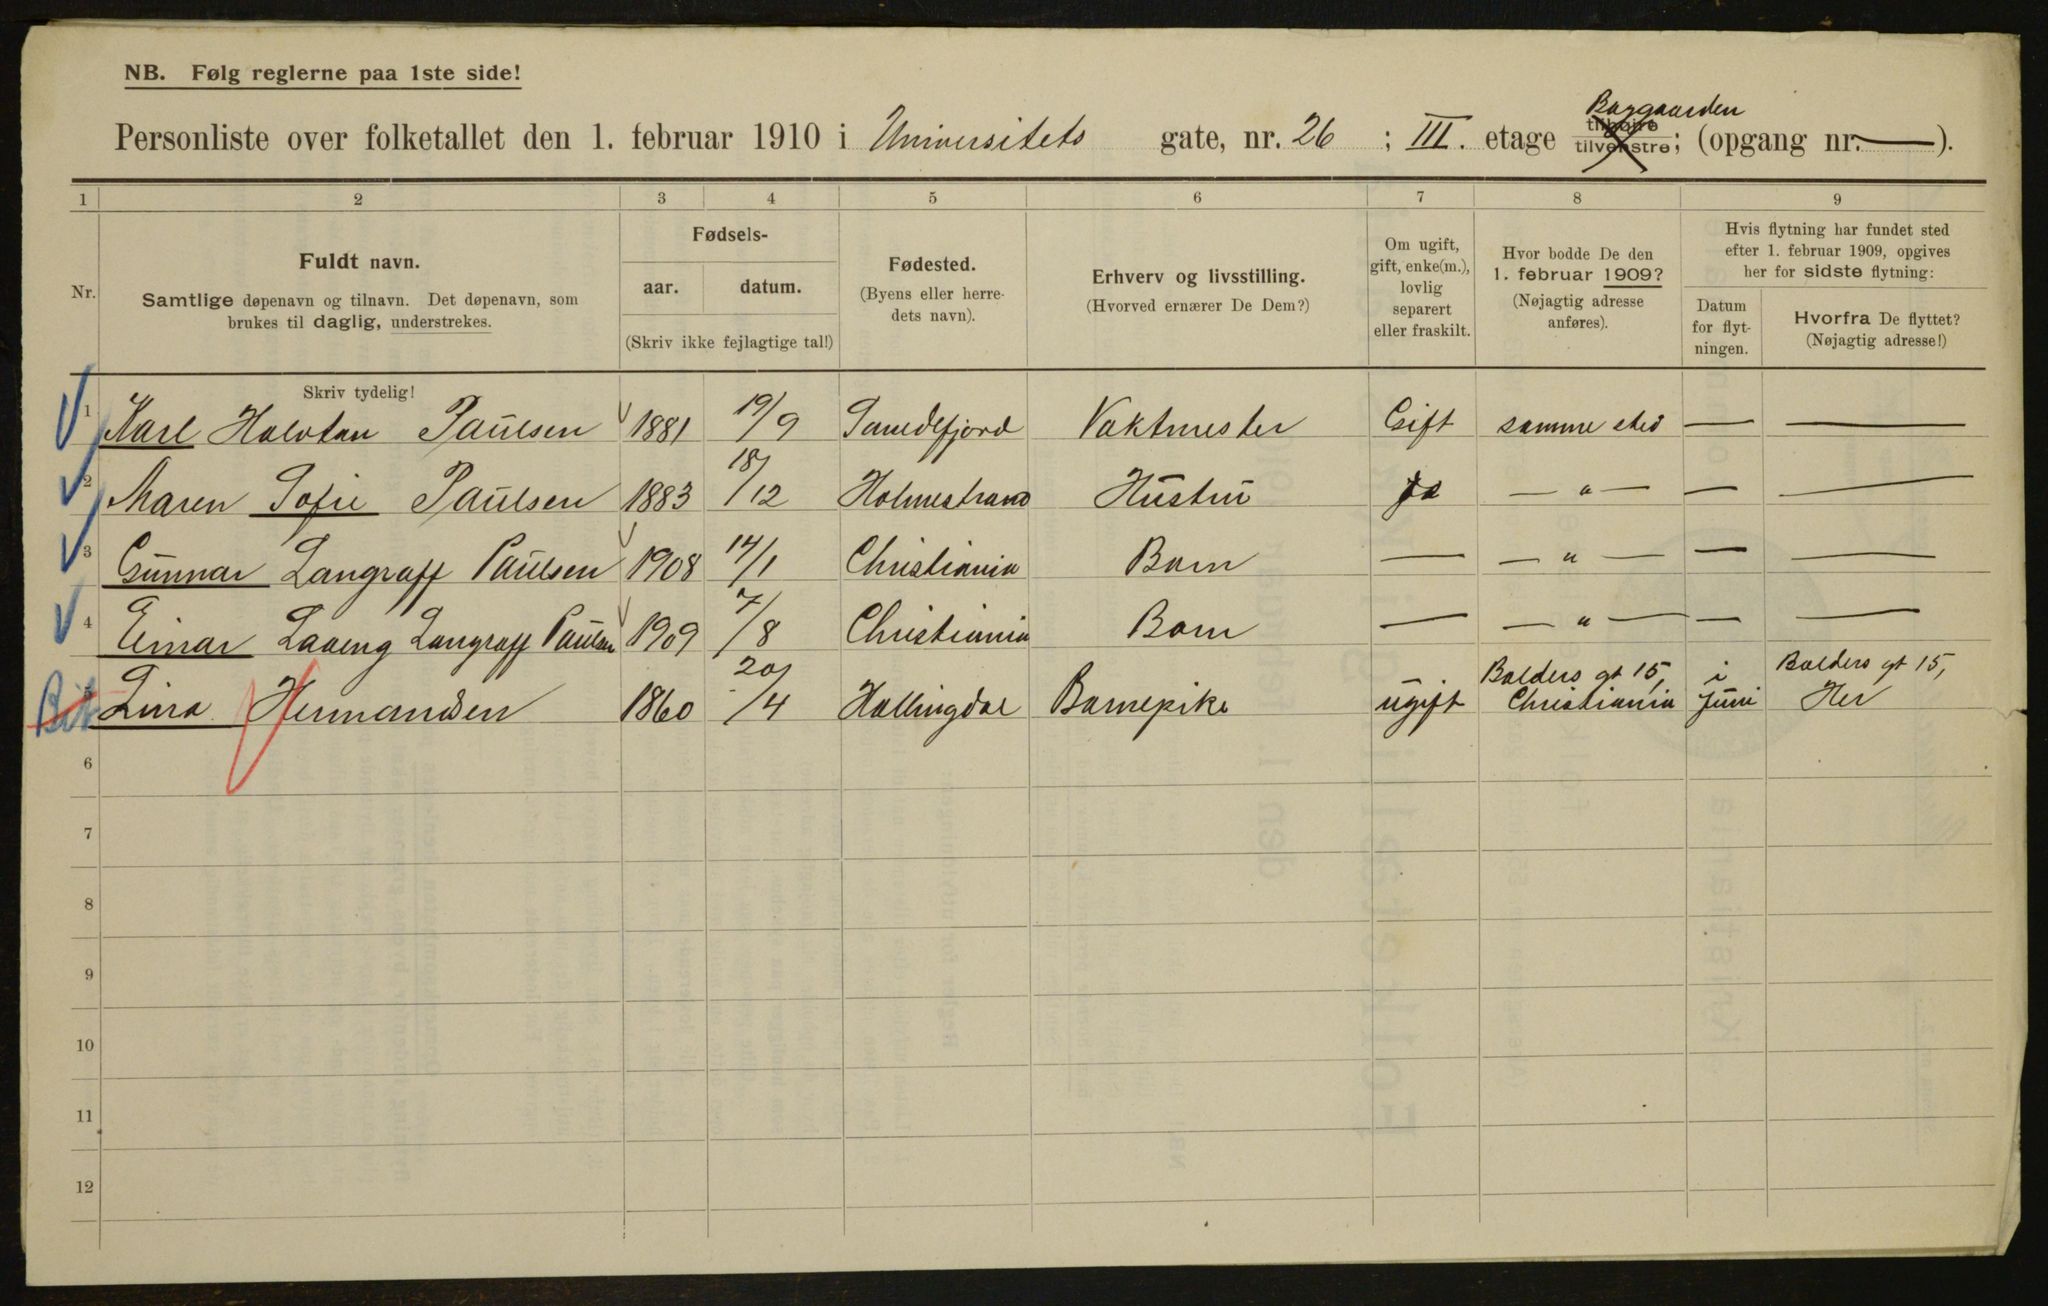 NB. Følg reglerne paa 1ste side!
Baggaarden
Personliste over folketallet den 1. februar 1910 i Universitets gate, nr. 26 ; III. etage tilhøire tilvenstre; (opgang nr. —).
1 2 3 4 5 6 7 8 9
Nr.
Fuldt navn.
Samtlige døpenavn og tilnavn. Det døpenavn, som
brukes til daglig, understrekes.
Fødsels-
aar. datum.
(Skriv ikke fejlagtige tal!)
Fødested.
(Byens eller herre-
dets navn).
Erhverv og livsstilling.
(Hvorved ernærer De Dem?)
Om ugift,
gift, enke(m.),
lovlig
separert
eller fraskilt.
Hvor bodde De den
1. februar 1909?
(Nøjagtig adresse
anføres).
Hvis flytning har fundet sted
efter 1. februar 1909, opgives
her for sidste flytning:
Datum
for flyt-
ningen.
Hvorfra De flyttet?
(Nøjagtig adresse!)
Skriv tydelig!
1 Karl Halvdan Paulsen 1881 19/9 Sandefjord Vaktmester Gift samme sted — —
2 Maren Sofie Paulsen 1883 18/12 Holmestrand Hustru — " — — —
3 Gunnar Langraff Paulsen 1908 14/1 Christiania Barn — — " — — —
4 Einar Laaeng Langraff Paulsen 1909 7/8 Christiania Barn — — " — — —
5 Lina Hermandsen 1860 20/4 Hallingdal Barnepike ugift Balders gt 15, Christiania i Juni Balders gt 15, Her
6
7
8
9
10
11
12